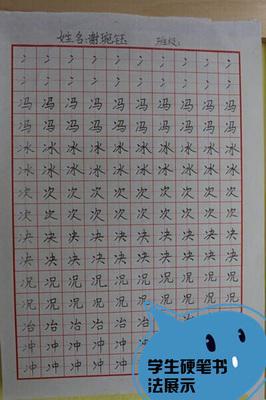 姓名:谢琬钰 班级:
冫 冫 冫 冫 冫 冫 冫 冫 冫 冫
冫 冫 冫 冫 冫 冫 冫 冫 冫 冫
冯 冯 冯 冯 冯 冯 冯 冯 冯 冯
冯 冯 冯 冯 冯 冯 冯 冯 冯 冯
冰 冰 冰 冰 冰 冰 冰 冰 冰 冰
冰 冰 冰 冰 冰 冰 冰 冰 冰 冰
次 次 次 次 次 次 次 次 次 次
次 次 次 次 次 次 次 次 次 次
决 决 决 决 决 决 决 决 决 决
决 决 决 决 决 决 决 决 决 决
况 况 况 况 况 况 况 况 况 况
况 况 况 况 况 况 况 况 况 况
冶 冶 冶 冶 冶 冶 冶
冲 冲 冲 冲 冲 冲
冲 冲 冲 冲 冲
学生硬笔书
法展示